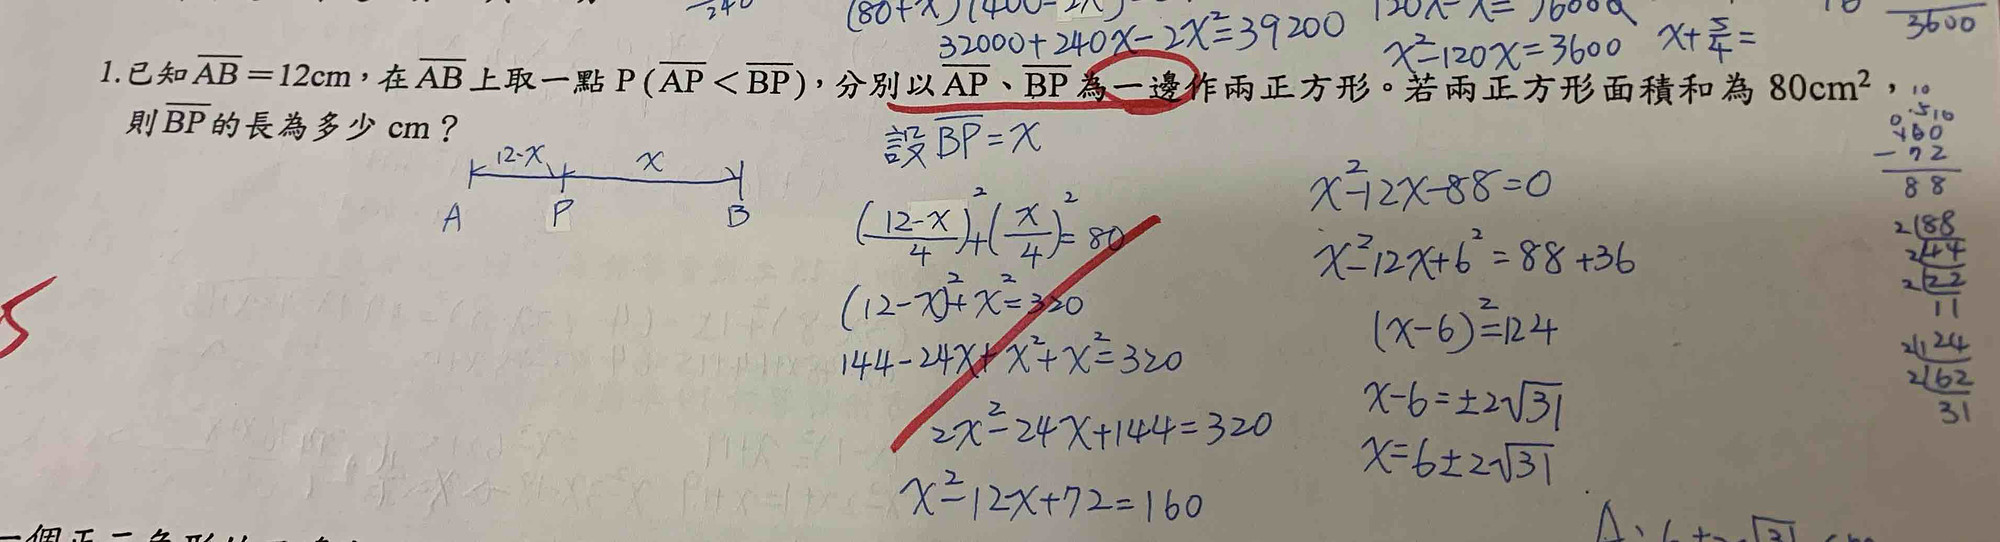 32000+240x-2x²=39200
x²-120x=3600
x+5/4=
3600
1.已知AB=12cm，在AB上取一點P(AP<BP)，分別以AP、BP為一邊作兩正方形。若兩正方形面積和為80cm²，
則BP的長為多少cm？
設BP=x
12-x x
A P B
((12-x)/4)²+(x/4)²=80
(12-x)²+x²=320
144-24x+x²+x²=320
2x²-24x+144=320
x²-12x+72=160
x²-12x-88=0
x²-12x+6²=88+36
(x-6)²=124
x-6=±2√31
x=6±2√31
160
-72
88
2 88
2 44
2 22
11
2 124
2 62
31
5